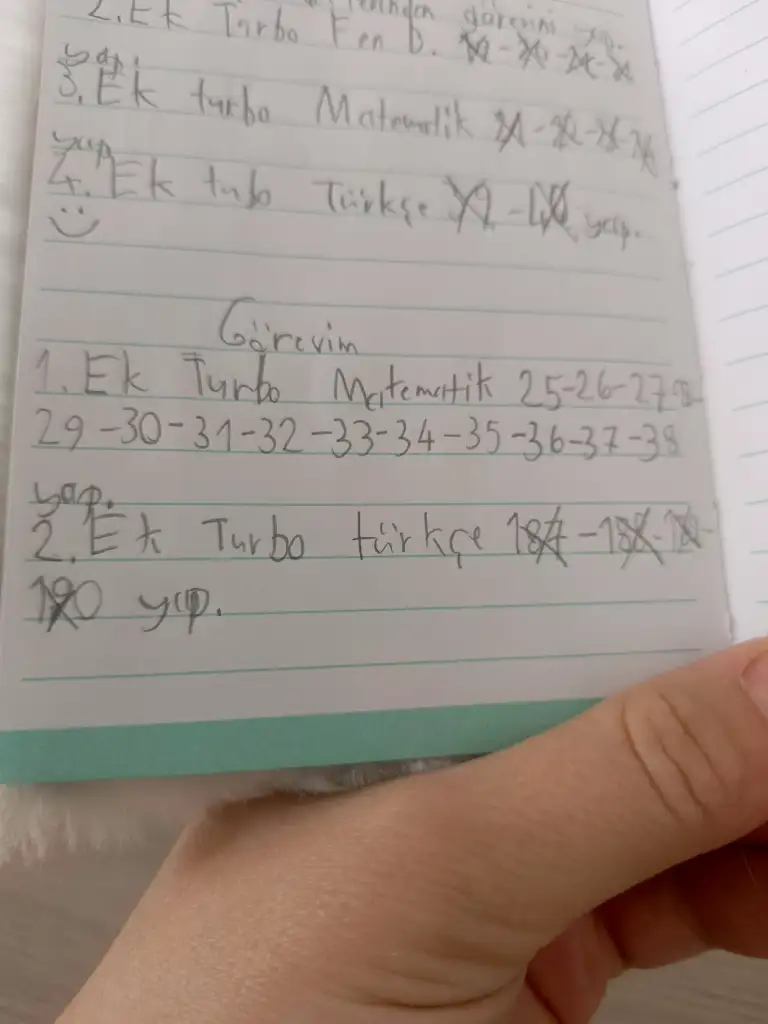 görevini yap.
2. Ek Turbo Fen D.
yap.
3. Ek turbo Matematik
yap
4. Ek tubo Türkçe yap.
Görevim
1. Ek Turbo Matematik 25-26-27-28-
29-30-31-32-33-34-35-36-37-38
yap.
2. Ek Turbo türkçe 187-188-189-
190 yap.